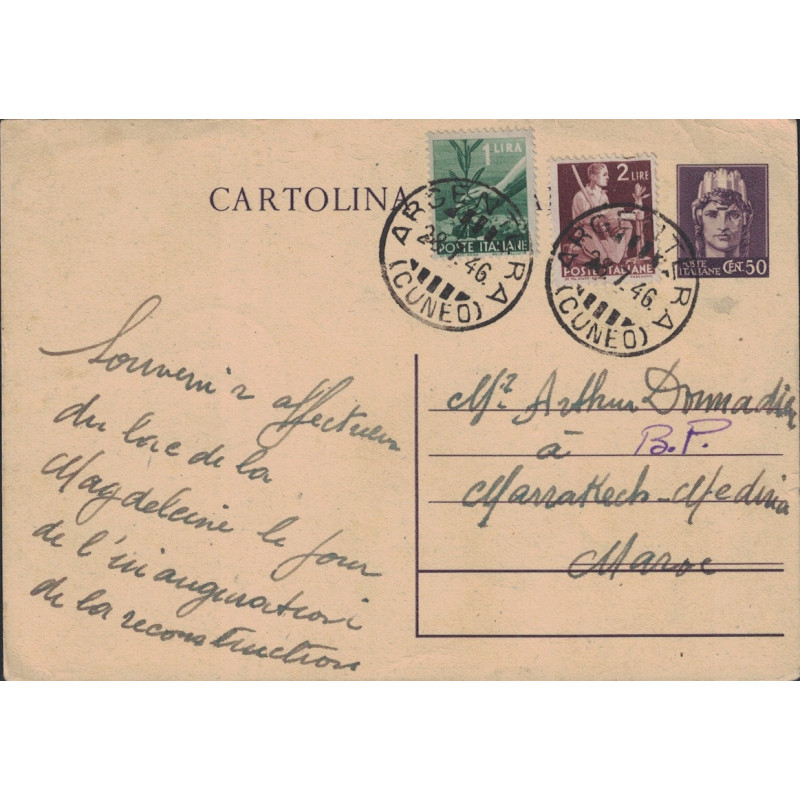 CARTOLINA
1 LIRA
POSTE ITALIANE
2 LIRE
POSTE ITALIANE
POSTE ITALIANE CEN. 50
ARGENTERA
46.
(CUNEO)
ARGENTERA
46.
(CUNEO)
Souvenir affectueux
du lac de la
Magdeleine le jour
de l'inauguration
de la reconstruction
Mr Arthur Donnadieu
à B.P.
Marrakech-Medina
Maroc